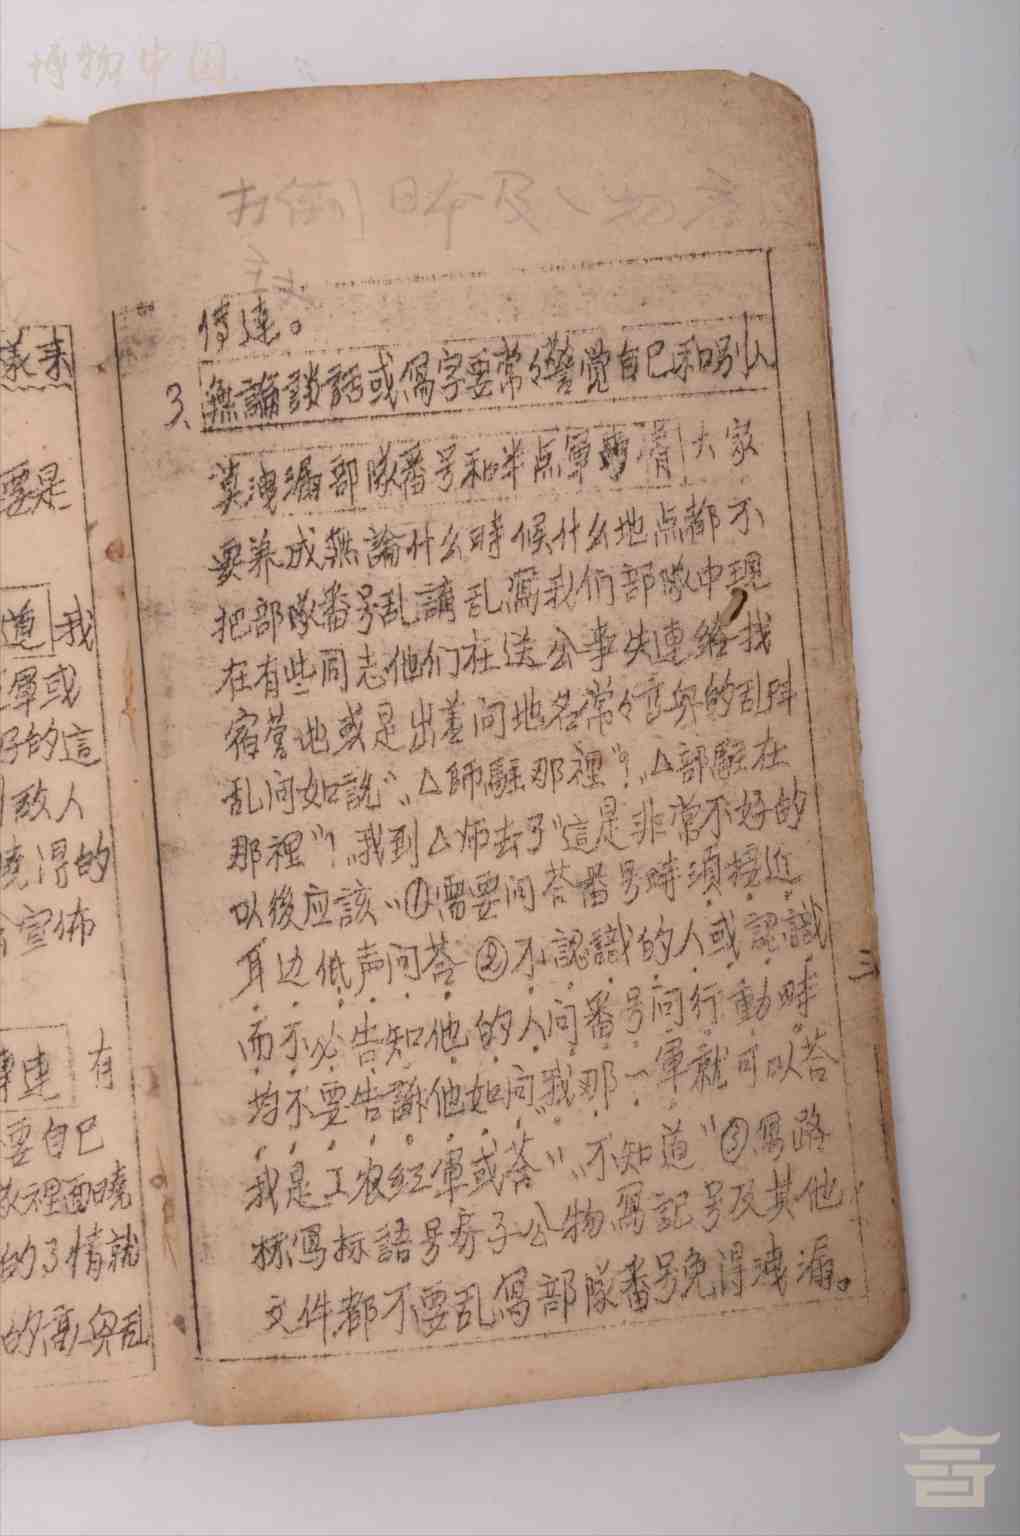 博物中国
打倒日本及
傳達。
3、無論談話或寫字要常々警覚自己和别人
莫洩漏部隊番号和半点軍事情 大家
要养成無論什么時候什么地点都不
把部隊番号乱講乱寫我们部隊中現
在有些同志他们在送公事失連絡找
宿营地或是出差问地名常々高興的乱叫
乱问如說“△師駐那裡”？“△部駐在
那裡”！“我到△师去了”這是非常不好的
以後应該“①需要问荅番号時須接近
耳边低声问荅②不認識的人或認識
而不必告知他的人问番号问行動時
均不要告訴他如问“我那一軍就可以荅
我是工农红軍或荅”“不知道”③寫路
标寫标語号房子公物寫記号及其他
文件都不要乱寫部隊番号免得洩漏。
三
樣来
要是
道 我
軍或
好的這
敌人
曉得的
宣佈
傳達 有
要自己
敌裡面曉
的了情就
的高興乱